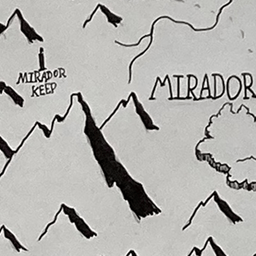 MIRADOR
KEEP
MIRADOR